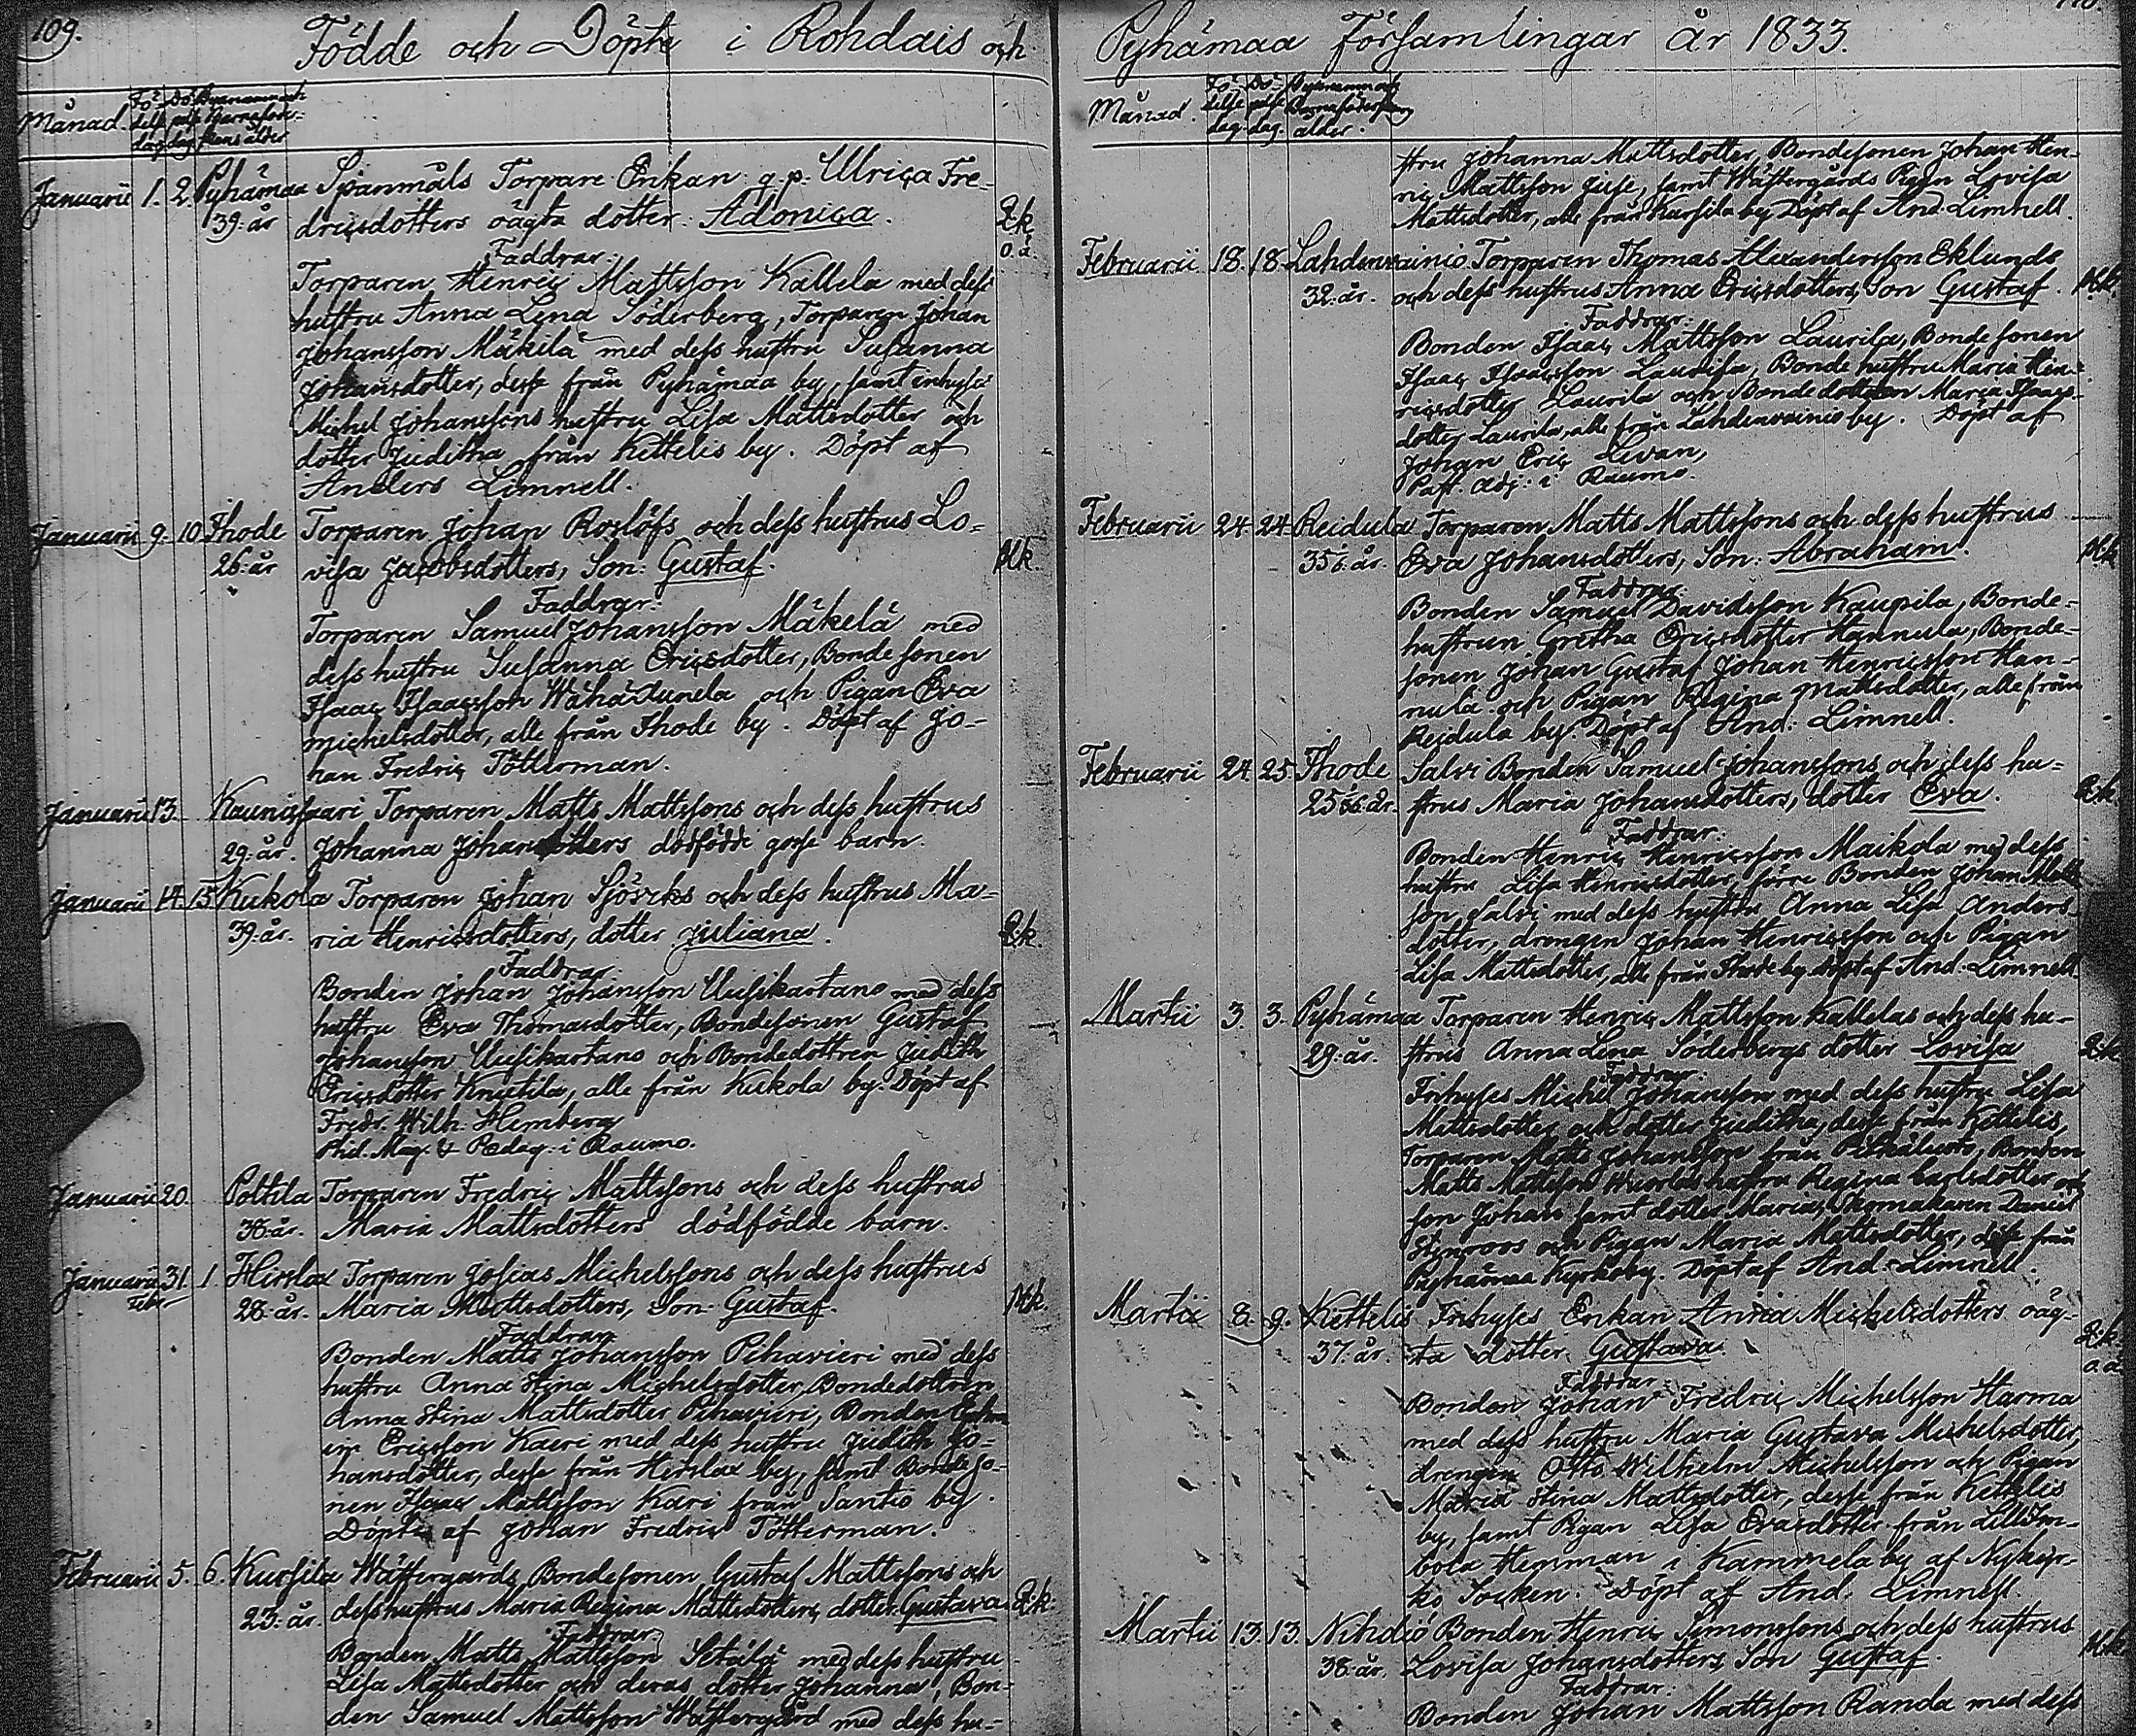 109.
Födde och Döpte i Rohdais och
Månad. Fö- delse dag Dö- pelse dag Byanamn och Barnaföder- skans ålder
Januarii 1. 2. Pyhämaa Spanmåls Torpare Enkan g. p. Ulrica Fre-
39. år dricsdotters oägta dotter: Adonica. Q.k.
Faddrar: o.ä.
Torparen Henric Mattsson Kallela med dess
hustru Anna Lena Söderberg, Torparen Johan
Johansson Mäkilä med dess hustru Susanna
Johansdotter, desse från Pyhämaa by, samt inhyses
Michel Johanssons hustru Lisa Mattsdotter och
dotter Juditha från Kettelis by. Döpt af
Anders Limnell.
Januarii 9. 10 Ihode Torparen Johan Roslöfs och dess hustrus Lo-
26. år visa Jacobsdotters, Son: Gustaf. M.k.
Faddrar:
Torparen Samuel Johansson Mäkelä med
dess hustru Susanna Ericsdotter, Bondesonen
Isaac Isaacsson Wähä Junela och Pigan Eva
Michelsdotter, alle från Ihode by. Döpt af Jo-
han Fredric Tötterman.
Januarii 13. Kaunissaari Torparen Matts Mattssons och dess hustrus
29. år. Johanna Johansdotters dödfödde gosse barn.
Januarii 14. 15 Kukola Torparen Johan Sjöviks och dess hustrus Ma-
39. år. ria Henricsdotters, dotter Juliana. Q.k.
Faddrar:
Bonden Johan Johansson Uusikartano med dess
hustru Eva Thomasdotter, Bondesonen Gustaf
Johansson Uusikartano och Bondedottren Judith
Ericsdotter Knutila, alle från Kukola by. Döpt af
Fredr. Wilh. Hemberg
Phil. Mag. & Pædag. i Raumo.
Januarii 20. Polttila Torparen Fredric Mattssons och dess hustrus
38. år. Maria Mattsdotters dödfödde barn.
Januarii 31. 1. Hirslax Torparen Josias Michelssons och dess hustrus
Febr. 28. år. Maria Mattsdotters, Son: Gustaf. M.k.
Faddrar
Bonden Matts Johansson Pihavieri med dess
hustru Anna Stina Michelsdotter, Bondedottren
Anna Stina Mattsdotter Pihavieri, Bonden Ephra
im Ericsson Kaeri med dess hustru Judith Jo-
hansdotter, desse från Hirslax by, samt Bondeso-
nen Isaac Mattsson Kari från Santio by.
Döpt af Johan Fredric Tötterman.
Februarii 5. 6. Kursila Wästergårds Bondesonen Gustaf Mattssons och
23. år. dess hustrus Maria Regina Mattsdotters, dotter Gustava. Q.k.
Faddrar:
Bonden Matts Mattsson Setälä med dess hustru
Lisa Mattsdotter och deras dotter Johanna, Bon-
den Samuel Mattsson Wästergård med dess hu-
Pyhämaa Församlingar år 1833.
Månad. Fö- delse dag. Dö- pelse dag. Byanamn och Barnaföderskans ålder.
stru Johanna Mattsdotter, Bondesonen Johan Hen-
ric Mattsson Juse, samt Wästergårds Pigan Lovisa
Mattsdotter, alle från Kursila by. Döpt af And. Limnell.
Februarii 18. 18. Lahdenvainio Torparen Thomas Alexandersson Eklunds
32. år. och dess hustrus Anna Ericsdotters, Son Gustaf. M.k.
Faddrar:
Bonden Isaac Mattsson Laurila, Bondesonen
Isaac Isaacsson Laurila, Bonde hustru Maria Hen-
ricsdotter Laurila och Bondedottren Maria Isaacs-
dotter Laurila, alle från Lahdenvainio by. Döpt af
Johan Eric Levan,
Past. Adj. i Raumo.
Februarii 24. 24. Reidula Torparen Matts Mattssons och dess hustrus
35 år. Eva Johansdotters, Son: Abraham. M.k.
Faddrar:
Bonden Samuel Davidsson Kaupila, Bonde-
hustrun Gretha Ericsdotter Hannula, Bonde-
sonen Johan Gustaf Johan Henricsson Han-
nula och Pigan Regina Mattsdotter, alle från
Reidula by. Döpt af And: Limnell.
Februarii 24. 25. Ihode Salvi Bonden Samuel Johanssons och dess hu-
25 år. strus Maria Johansdotters, dotter Eva. Q.k.
Faddrar:
Bonden Henric Henricsson Maikola med dess
hustru Lisa Henricsdotter, förre Bonden Johan Matts
son Salvi med dess hustru Anna Lisa Anders-
dotter, drengen Johan Henricsson och Pigan
Lisa Mattsdotter, alle från Ihode by. Döpt af And. Limnell.
Martii 3. 3. Pyhämaa Torparen Henric Mattsson Kallelas och dess hu-
29. år. strus Anna Lena Söderbergs dotter Lovisa Q.k.
Faddrar:
Inhyses Michel Johansson med dess hustru Lisa
Mattsdotter och dotter Juditha, desse från Kettelis,
Torparen Matts Johansson från Pitkäluoto, Bonden
Matts Mattsson hustru Regina Carlsdotter och
son Johan samt dotter Maria, Skomakaren Daniel
Stenroos och Pigan Maria Mattsdotter, desse från
Pyhämaa Kyrkoby. Döpt af And. Limnell.
Martii 8. 9. Kettelis Inhyses Enkan Anna Michelsdotters oäg-
37. år. ta dotter Gustava. Q.k.
Faddrar: o.ä.
Bonden Johan Fredric Michelsson Harma
med dess hustru Maria Gustava Michelsdotter,
drengen Otto Wilhelm Michelsson och Pigan
Maria Stina Mattsdotter, desse från Kettelis
by, samt Pigan Lisa Evasdotter från
Hemman i Kammela by af Nykyr-
ko Socken. Döpt af And. Limnell.
Martii 13. 13. Nihdiö Bonden Henric Simonssons och dess hustrus
38. år. Lovisa Johansdotters Son Gustaf. M.k.
Faddrar:
Bonden Johan Mattsson Randa med dess